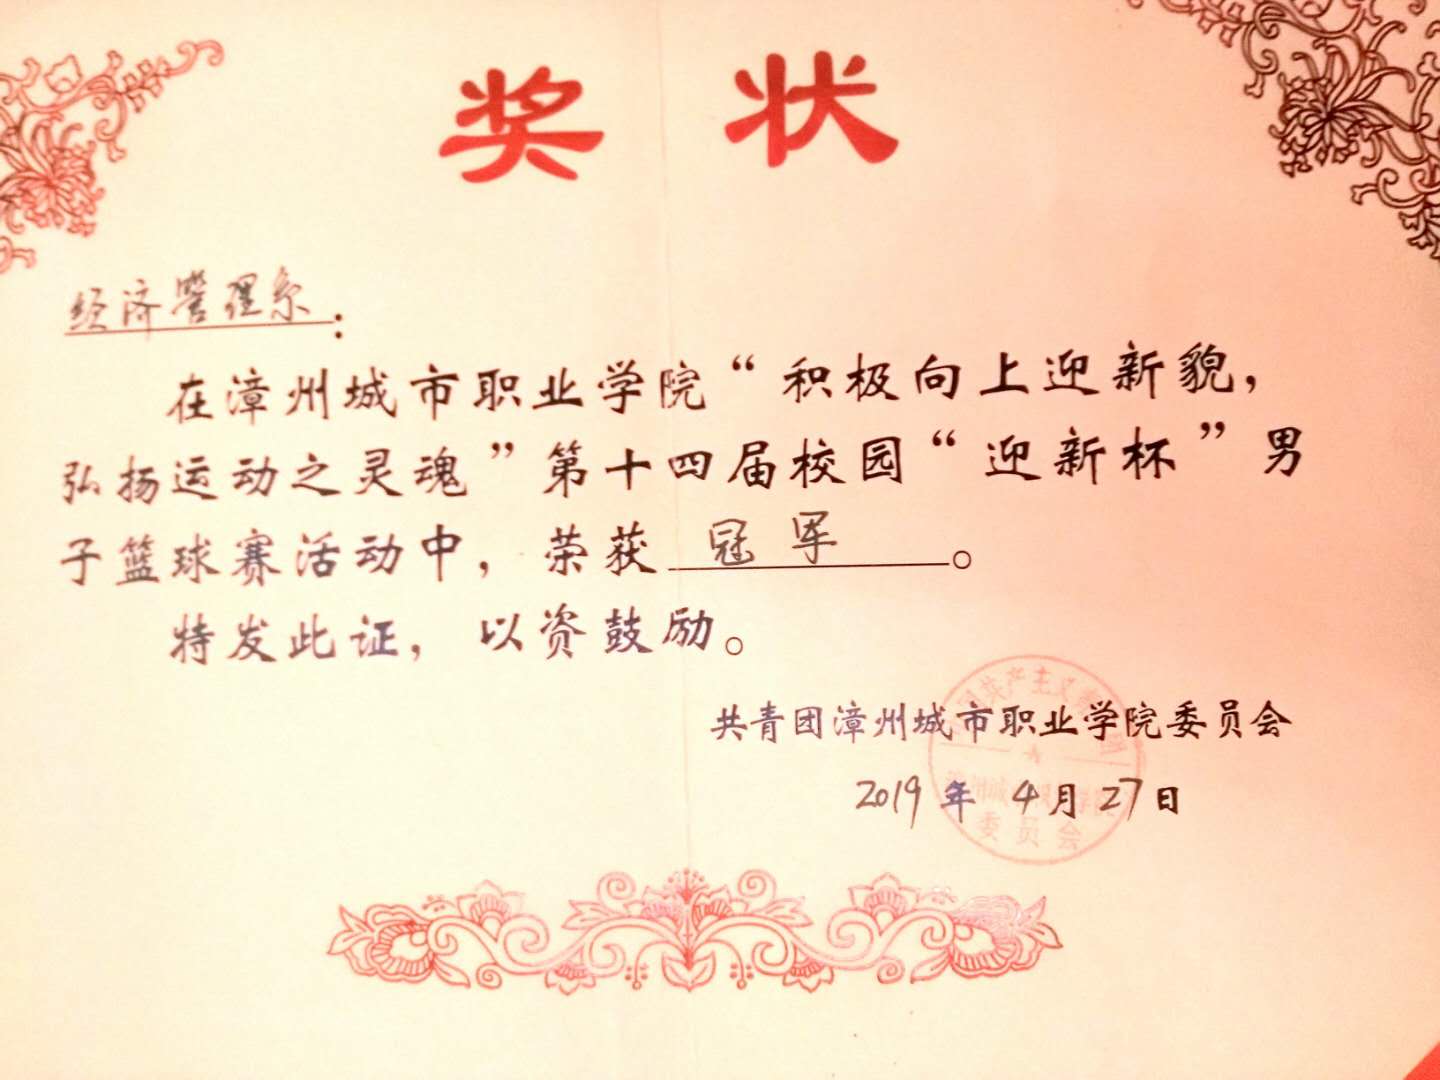 奖状
经济管理系：
在漳州城市职业学院“积极向上迎新貌，
弘扬运动之灵魂”第十四届校园“迎新杯”男
子篮球赛活动中，荣获冠军。
特发此证，以资鼓励。
共青团漳州城市职业学院委员会
2019年4月27日
共产主义
委员会